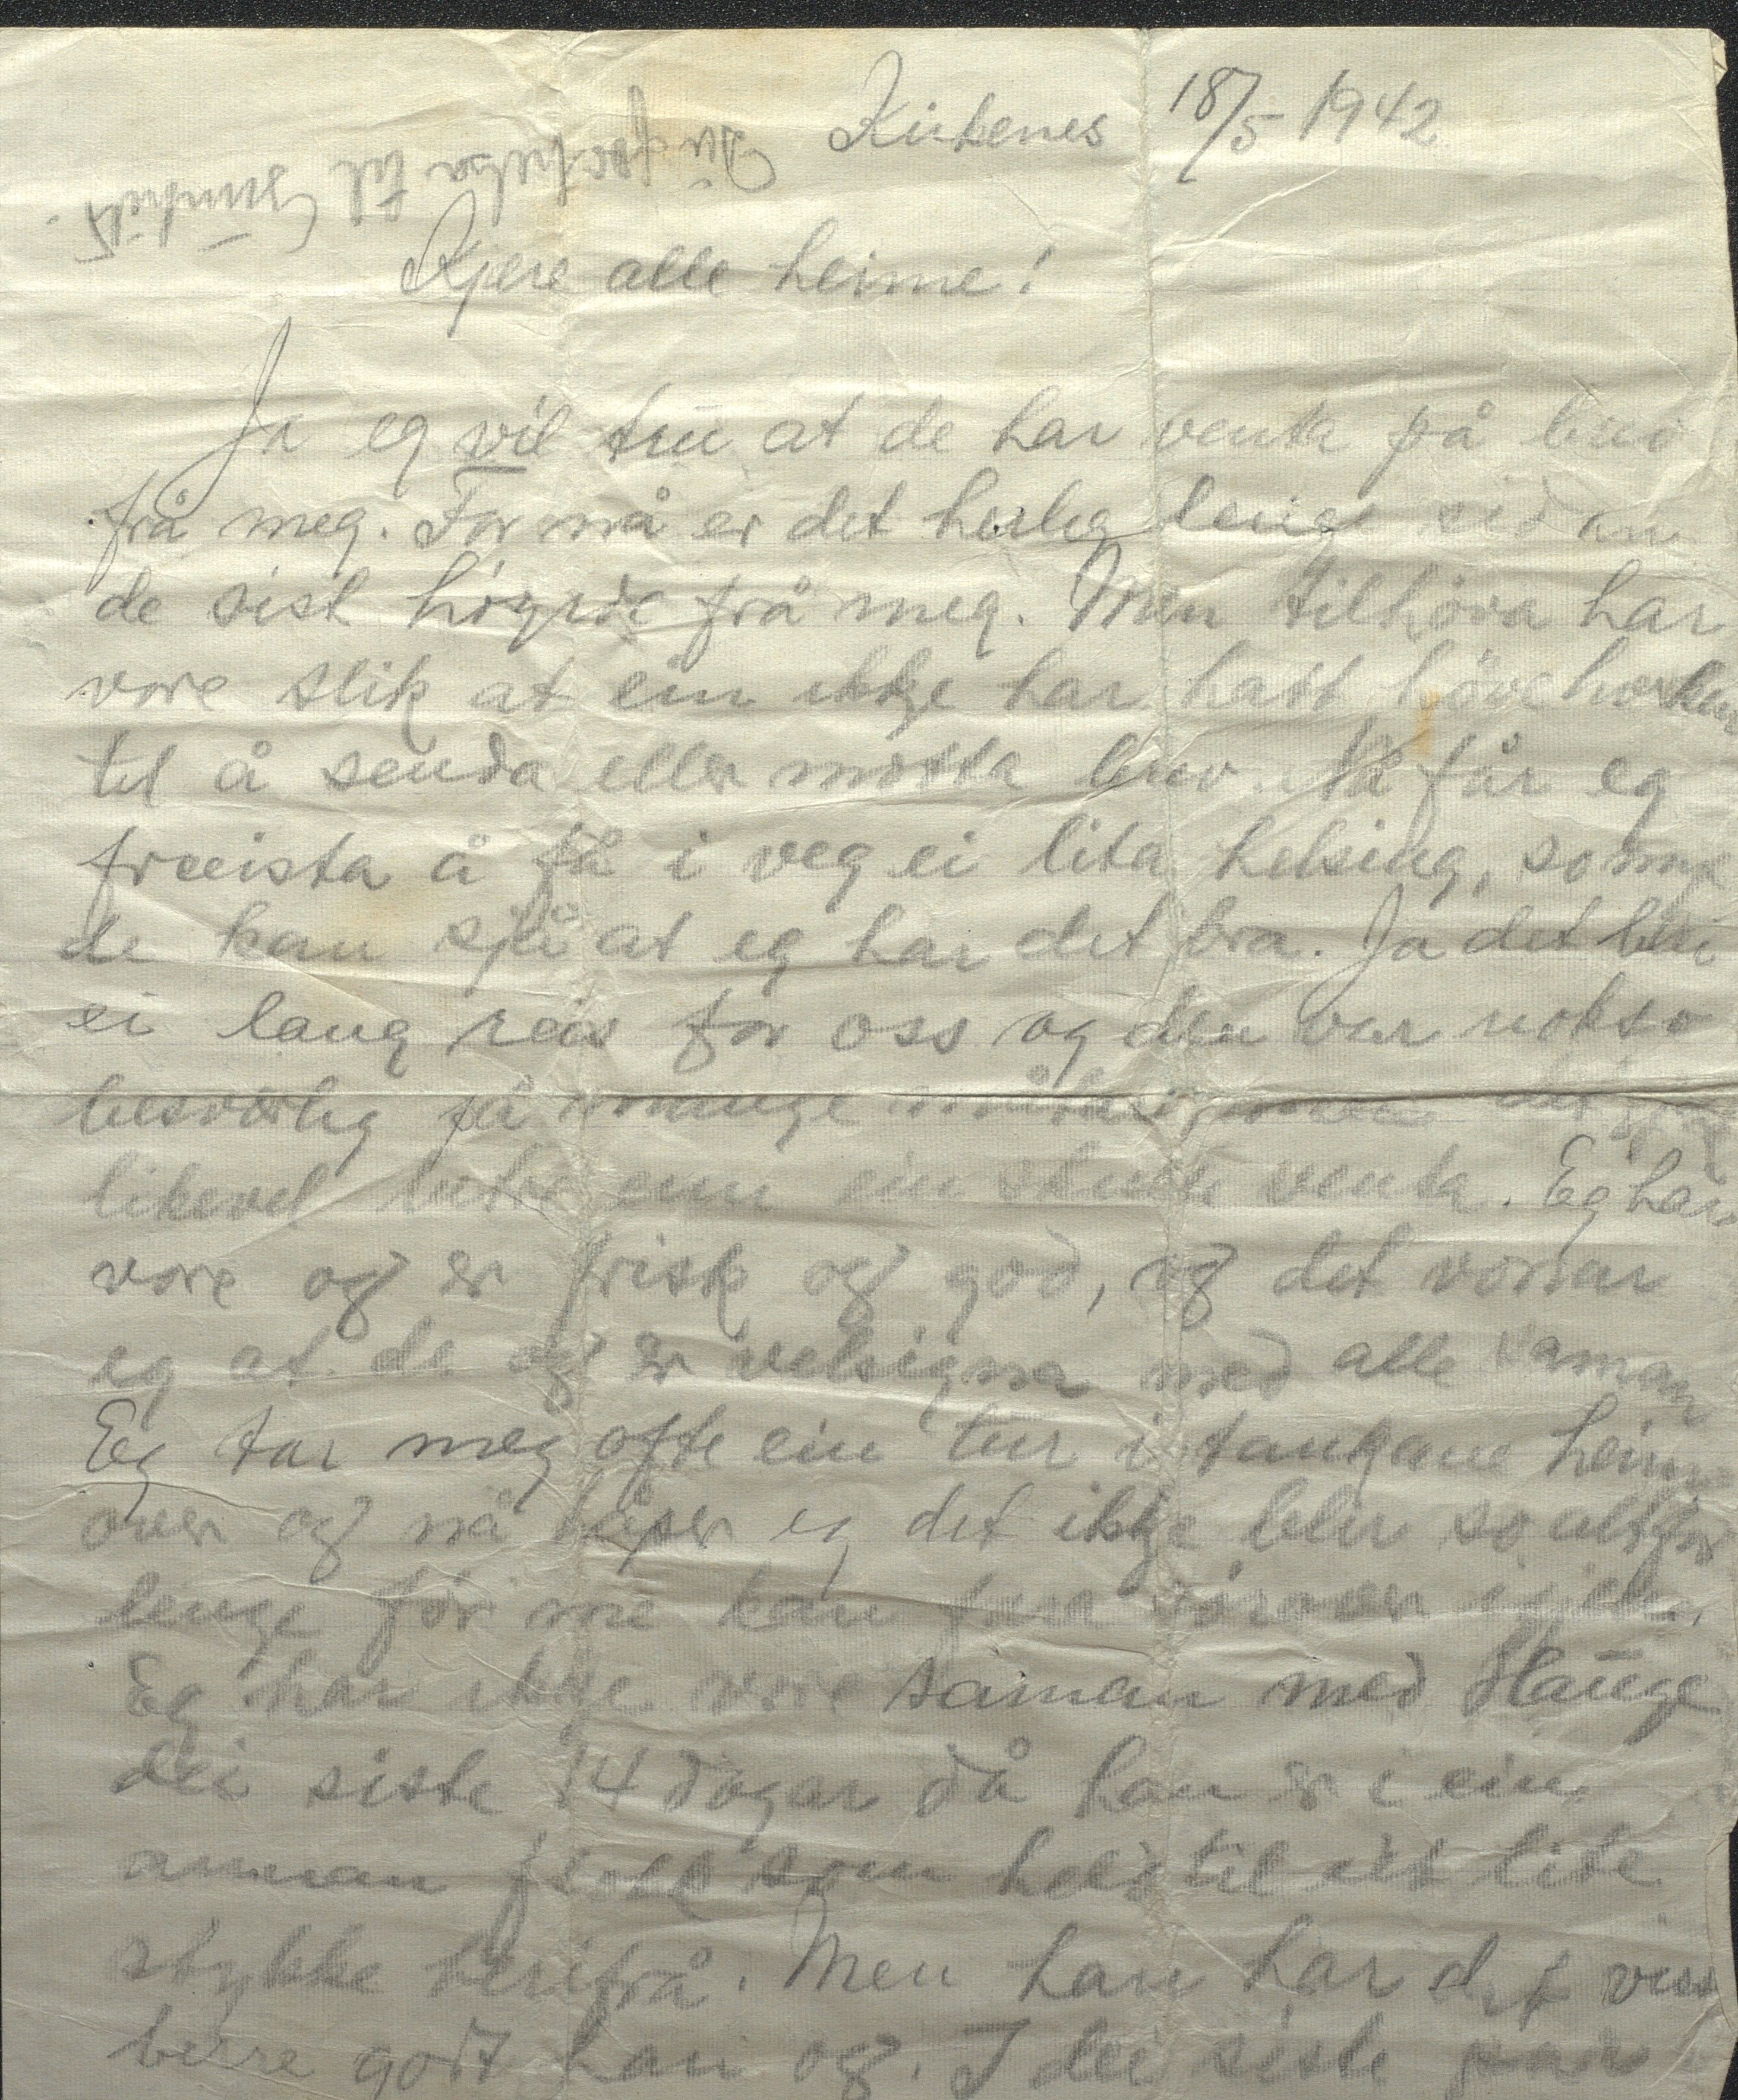 Kirkenes 18/5 1942
De får helsa til
Kjere alle heime!
Ja eg vil tru at de har venta på brev
frå meg. For nå er det herleg lenge sidan
de sist høyrde frå meg. Men tilhøva har
vore slik at ein ikkje har hatt høve horken
til å senda eller motta brev. Nå får eg
freeista å få i veg ei lita helsing, so
de kan sjå at eg har det bra. Ja det blei
ei lang reis for oss og den var nokso
besværleg på mange måtar, men det
likevel betre enn ein skulle venta. Eg har
vore og er frisk og god, og det vonar
eg at de og er velsigna med alle saman
Eg tar meg ofte ein tur i tankane heim
over og nå håper eg det ikkje blir so altfor
lenge før me kan fara sørover igjen.
Eg har ikkje vore saman med Hauge
dei siste 14 dagar då han er i ein
annan flokk som held til eit lite
stykke herifrå. Men han har det viss
berre godt han og. I dei siste par